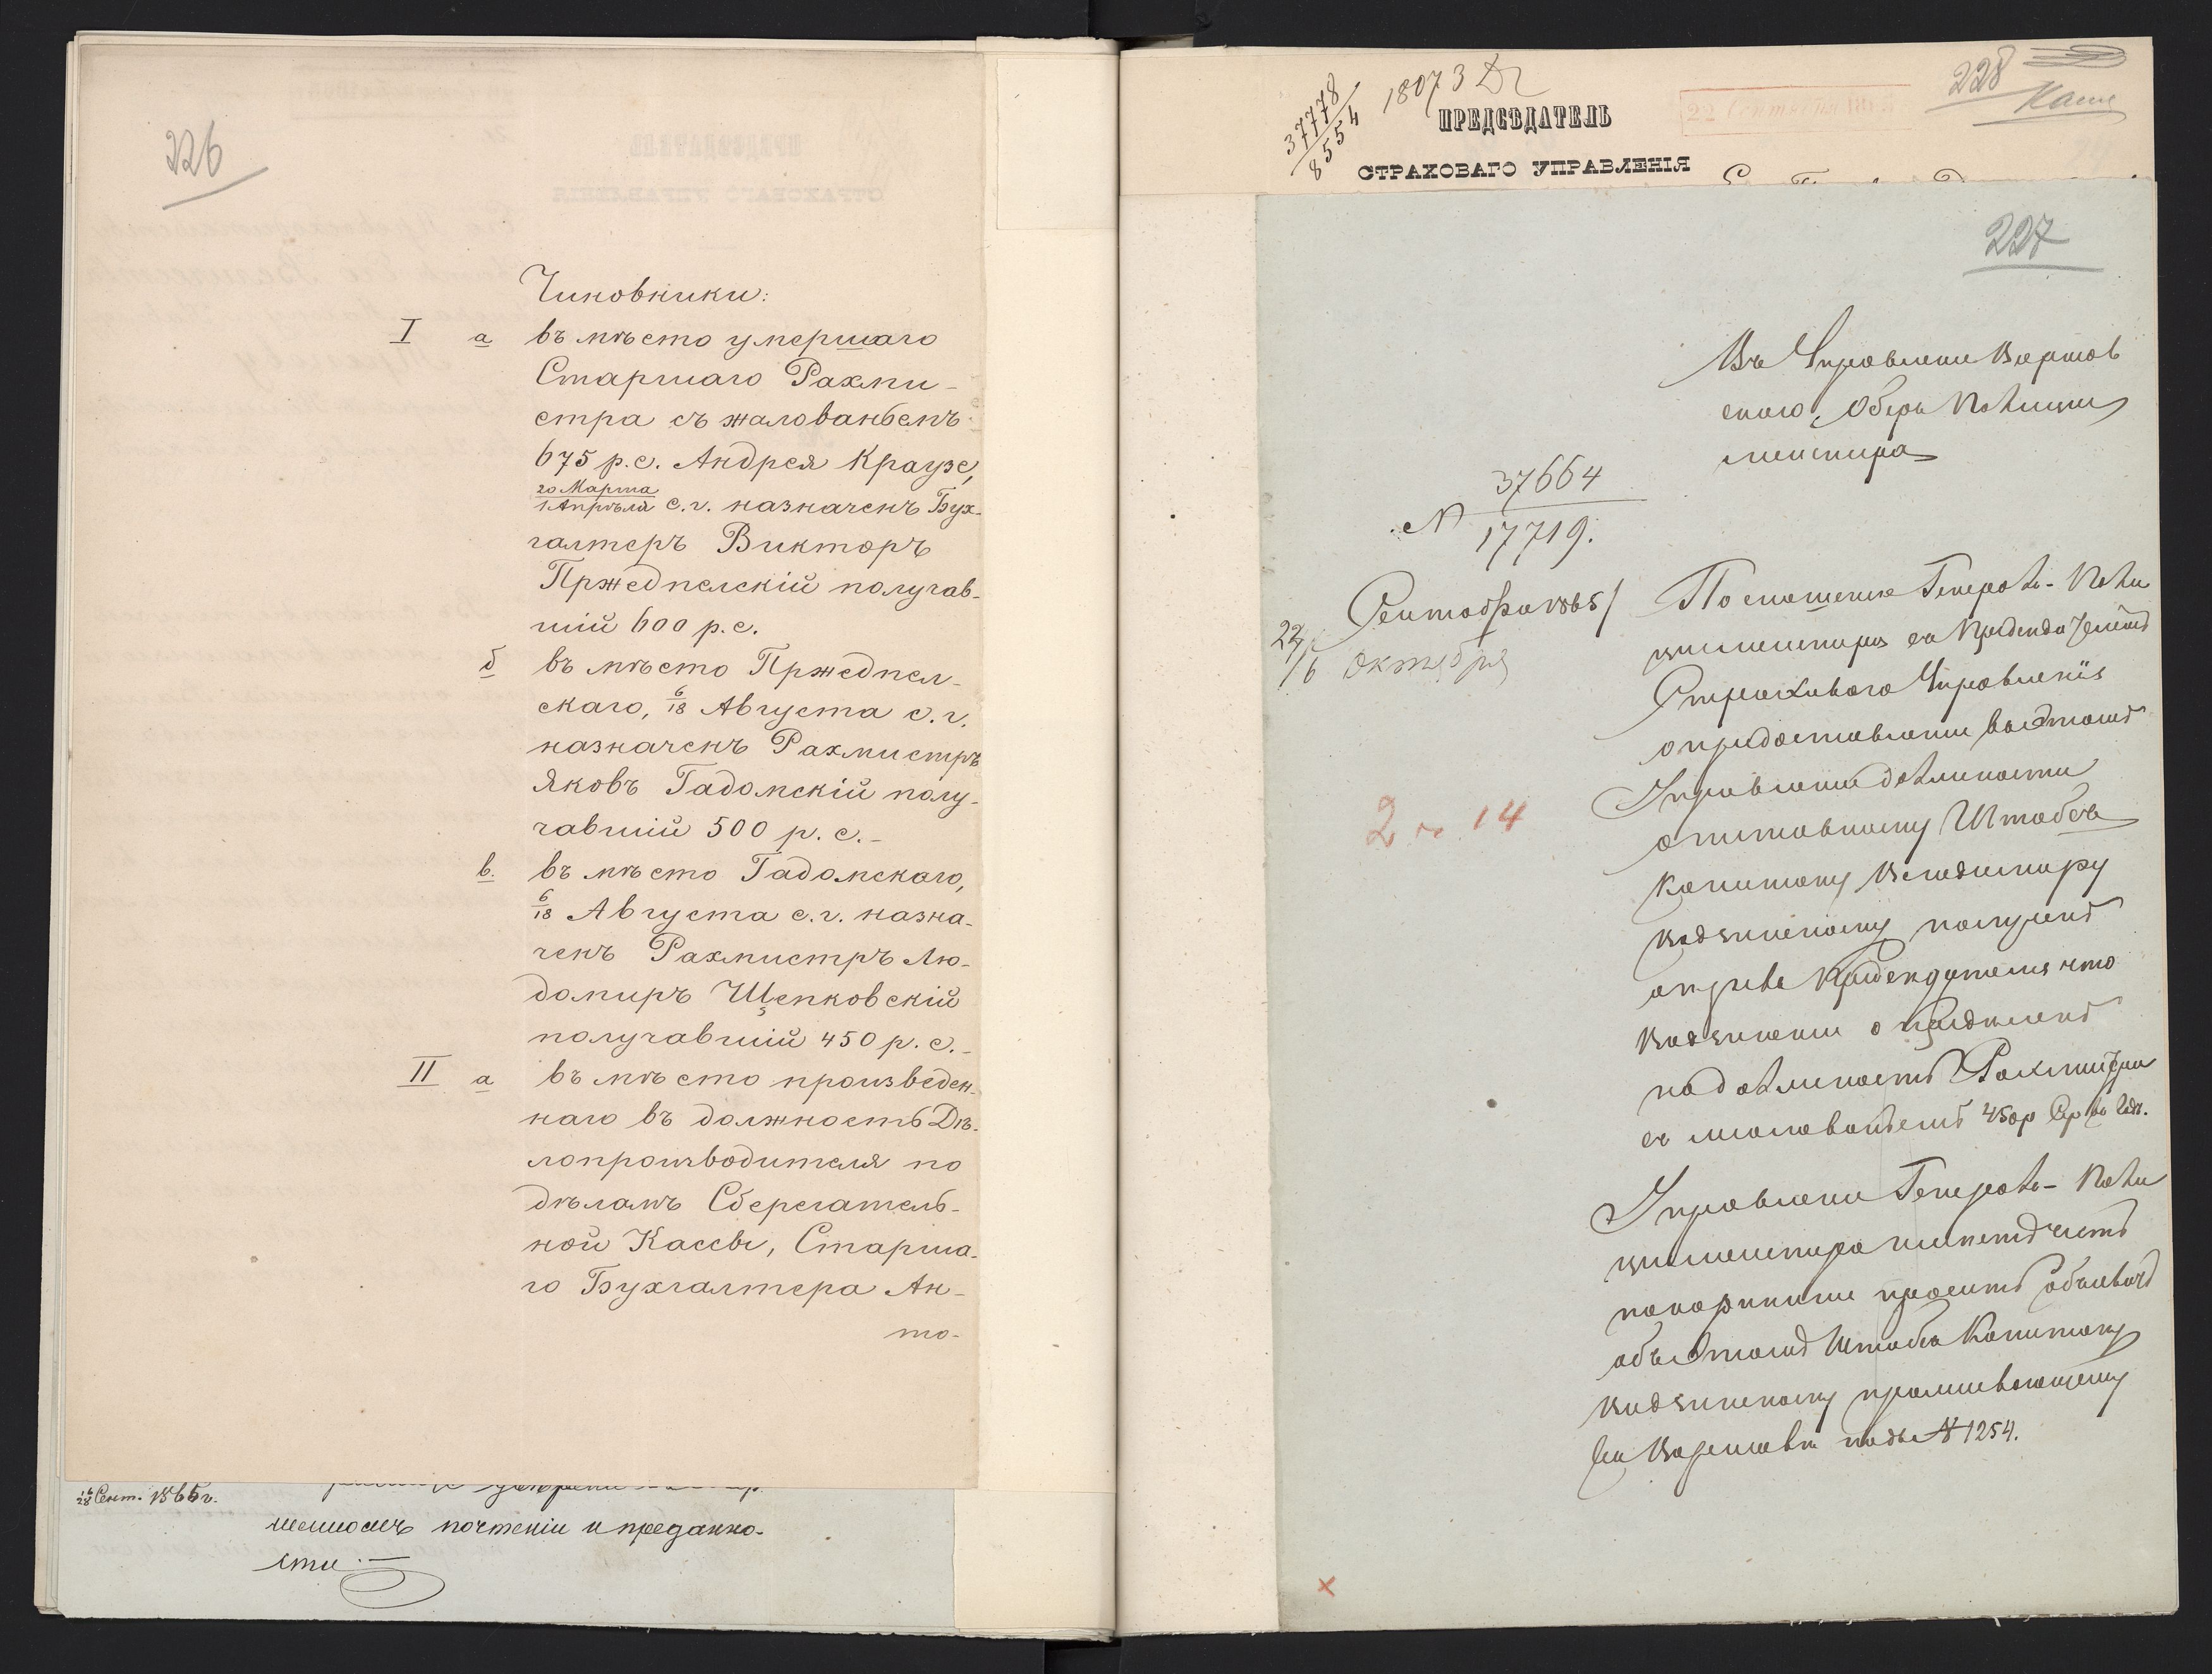 226
Чиновники:
I а въ мѣсто умершаго
Старшаго Рахми-
стра съ жалованьемъ
675 р.с. Андрея Краузе,
20 Марта
1 Апрѣля с.г. назначенъ Бух-
галтеръ Викторъ
Пржедпелскій получав-
шій 600 р.с.
б въ мѣсто Пржедпел-
скаго, 6/18 Августа с.г.
назначенъ Рахмистръ
Яковъ Гадомскій полу-
чавшій 500 р.с.-
в. въ мѣсто Гадомскаго,
6/18 Августа с.г. назна-
ченъ Рахмистръ Лю-
домиръ Щепковскій
получавшій 450 р.с.-
II а въ мѣсто произведен-
наго въ должность Дѣ-
лопроизводителя по
дѣламъ Сберегатель-
ной Кассы, Старша-
го Бухгалтера Ан-
то-
16/28 Сент. 1865 г.
почтеніи и преданно-
сти.-
37778
8554
18073
ПРЕДСѢДАТЕЛЬ
СТРАХОВАГО УПРАВЛЕНІЯ
22 Сентября
228
227
Въ Управленіе Варшав
скаго Оберъ Полицій
мейстера
37664
№
17719.
Сентября 1865
22/6 Октября
По сношенію Генералъ-Поли
ціймейстера съ Предсѣдателемъ
Страховаго Управленія
о предоставленіи въ этомъ
Управленіи должности
отставному Штабсъ
Капитану Владиміру
получено
Предсѣдателя что
опредѣленъ
на должность Рахмистра
съ жалованьемъ 450р Сер въ годъ.
Управленіе Генералъ-Поли
ціймейстера имѣетъ честь
покорнѣйше просить объявить
объ этомъ Штабсъ Капитану
проживающему
въ Варшавѣ подъ № 1254.
2 14